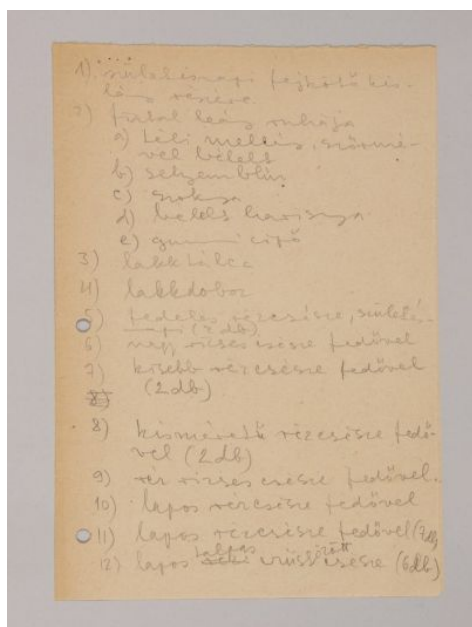 1). születésnapi fejkötő kis-
lány részére
2) fiatal leány ruhája
a) téli mellény, szőrmé-
vel bélelt
b) selyemblúz
c) szoknya
d) bélelt harisnya
e) gumicipő
3) lakktálca
4) lakkdoboz
5) fedeles rézcsésze, születés-
napi (2 db)
6) nagy rizses csésze fedővel
7) kisebb rézcsésze fedővel
(2 db)
8)
8) kisméretű rézcsésze fedő-
vel (2 db)
9) réz rizses csésze fedővel.
10) lapos rézcsésze fedővel
11) lapos rézcsésze fedővel (7 db)
12) lapos talpas csésze (6 db)